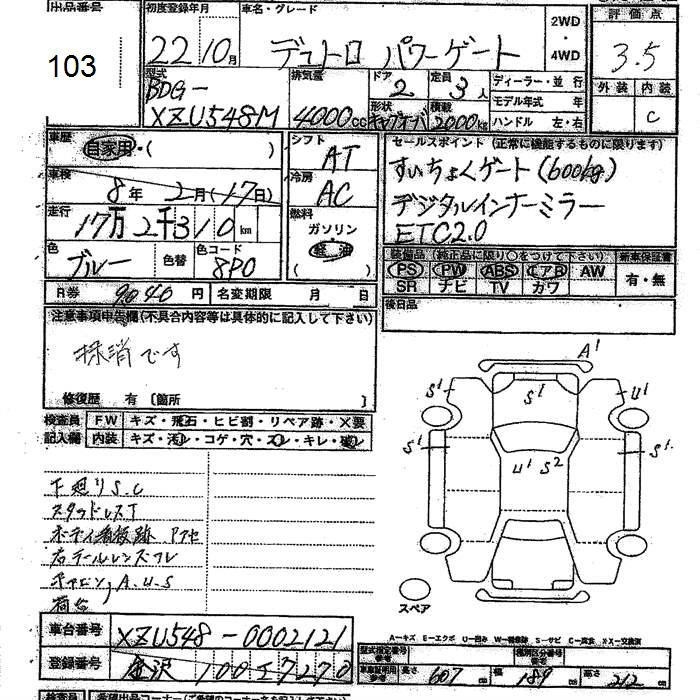 出品番号 初度登録年月 車名・グレード 2WD ・ 4WD 評価点
103 22 10月 デュトロ パワーゲート 3.5
型式 排気量 ドア 定員 ディーラー・並行 外装 内装
BDG- 2 3人 モデル年式 年
XZU548M 4000cc 形状 キャブオーバ 積載 2000kg ハンドル 左・右 C
車歴 シフト セールスポイント (正常に機能するものに限ります)
自家用・( ) AT すいちょくゲート(600kg)
車検 冷房
8年 2月(17日) AC デジタルインナーミラー
走行 燃料
17万2千310km ガソリン ETC2.0
色 色替 色コード
ブルー 8P0 軽油
装備品 (純正品に限り○をつけて下さい) 新車保証書
PS PW ABS エアB AW 有・無
SR ナビ TV カワ
R券 9040円 名変期限 月 日
後日品
注意事項申告欄(不具合内容等は具体的に記入して下さい)
抹消です
修復歴 有 〔箇所 〕
検査員 FW キズ・飛石・ヒビ割・リペア跡・X要
記入欄 内装 キズ・汚レ・コゲ・穴・スレ・キレ・破レ
A1
S1 S1 U1
S1 S1
U1 S2
下廻りS.C
スタッドレスT
ボディ看板跡 アナ
右テールレンズワレ
キャビン,A.U.S
荷台
スペア
A-キズ E-エクボ U-凹み W-補修跡 S-サビ C-腐食 XX-交換済
車台番号 XZU548-0002121
型式指定番号 参考 類別区分番号 参考
登録番号 金沢 100 え 7270
長さ 607cm 幅 189cm 高さ 212cm
検査員 希望出品コーナー